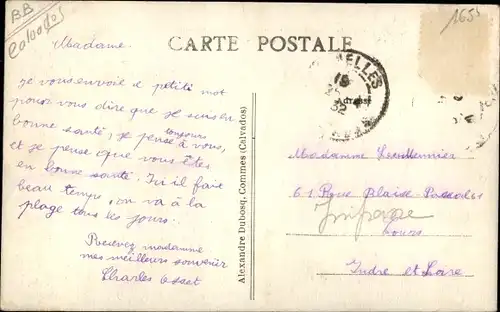 BB
Calvados
1655
CARTE POSTALE
Madame.
je vous envoie 1 petit mot
pour vous dire que je suis en
bonne santé, je pense toujours à vous,
et je pense que vous êtes
en bonne santé. Ici il fait
beau temps, on va à la
plage tous les jours.
Recevez madame
mes meilleurs souvenir
Charles
Alexandre Dubosq, Commes (Calvados)
ELLES
Adresse
Madamme
61 Rue Blaise Pascal 61
Impasse
Tours
Indre et Loire